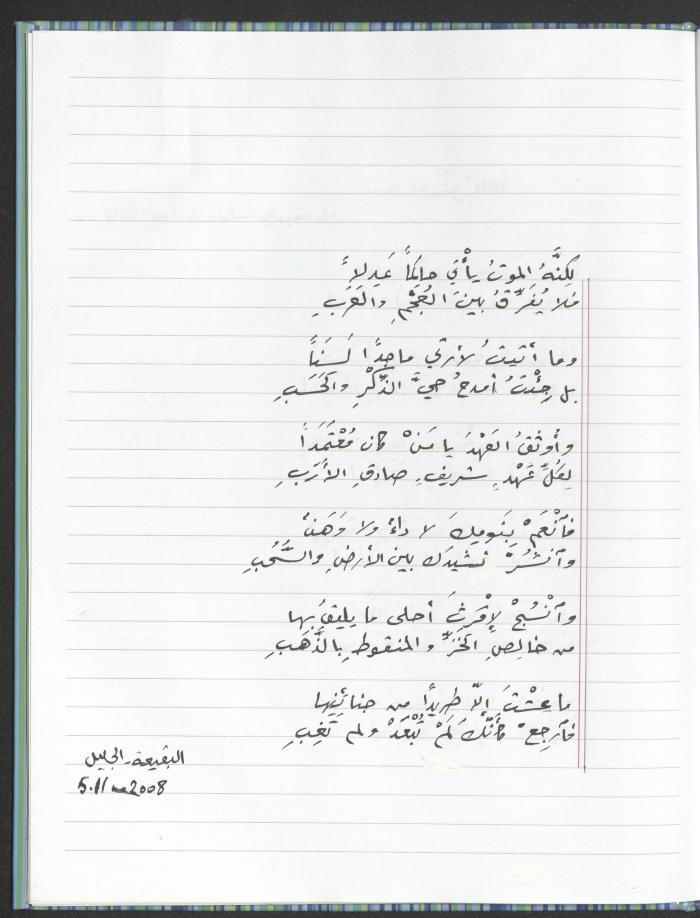 لكِنَّهُ الموتُ يأْتي حاكِمًا عَدِلاً
فلا يُفَرِّقُ بينَ العُجْمِ والعَرَبِ
وما أتيتُ لأرثي ماجِدًا لَسِنًا
بل جِئْتُ أمدحُ حيَّ الذِّكْرِ والحَسَبِ
وأُوثِقُ العَهْدَ يا مَنْ كان مُعْتَمَدًا
لِكُلِّ عَهْدٍ شريفٍ صادقِ الأَرَبِ
فٱنْعَمْ بِنَومِكَ لا داءٌ ولا وَهَنٌ
وٱنْشُرْ نشيدَك بين الأرضِ والسُّحُبِ
وٱنْسُجْ لإقْرِثَ أحلى ما يليقُ بها
من خالِصِ الخَزِّ والمنقوطِ بالذَّهَبِ
ما عِشْتَ إلّا طريدًا من جنائِنِها
فٱرجِعْ كأنّكَ لَمْ تُبْعَدْ ولم تَغِبِ
البقيعة - الجليل
5.11.2008